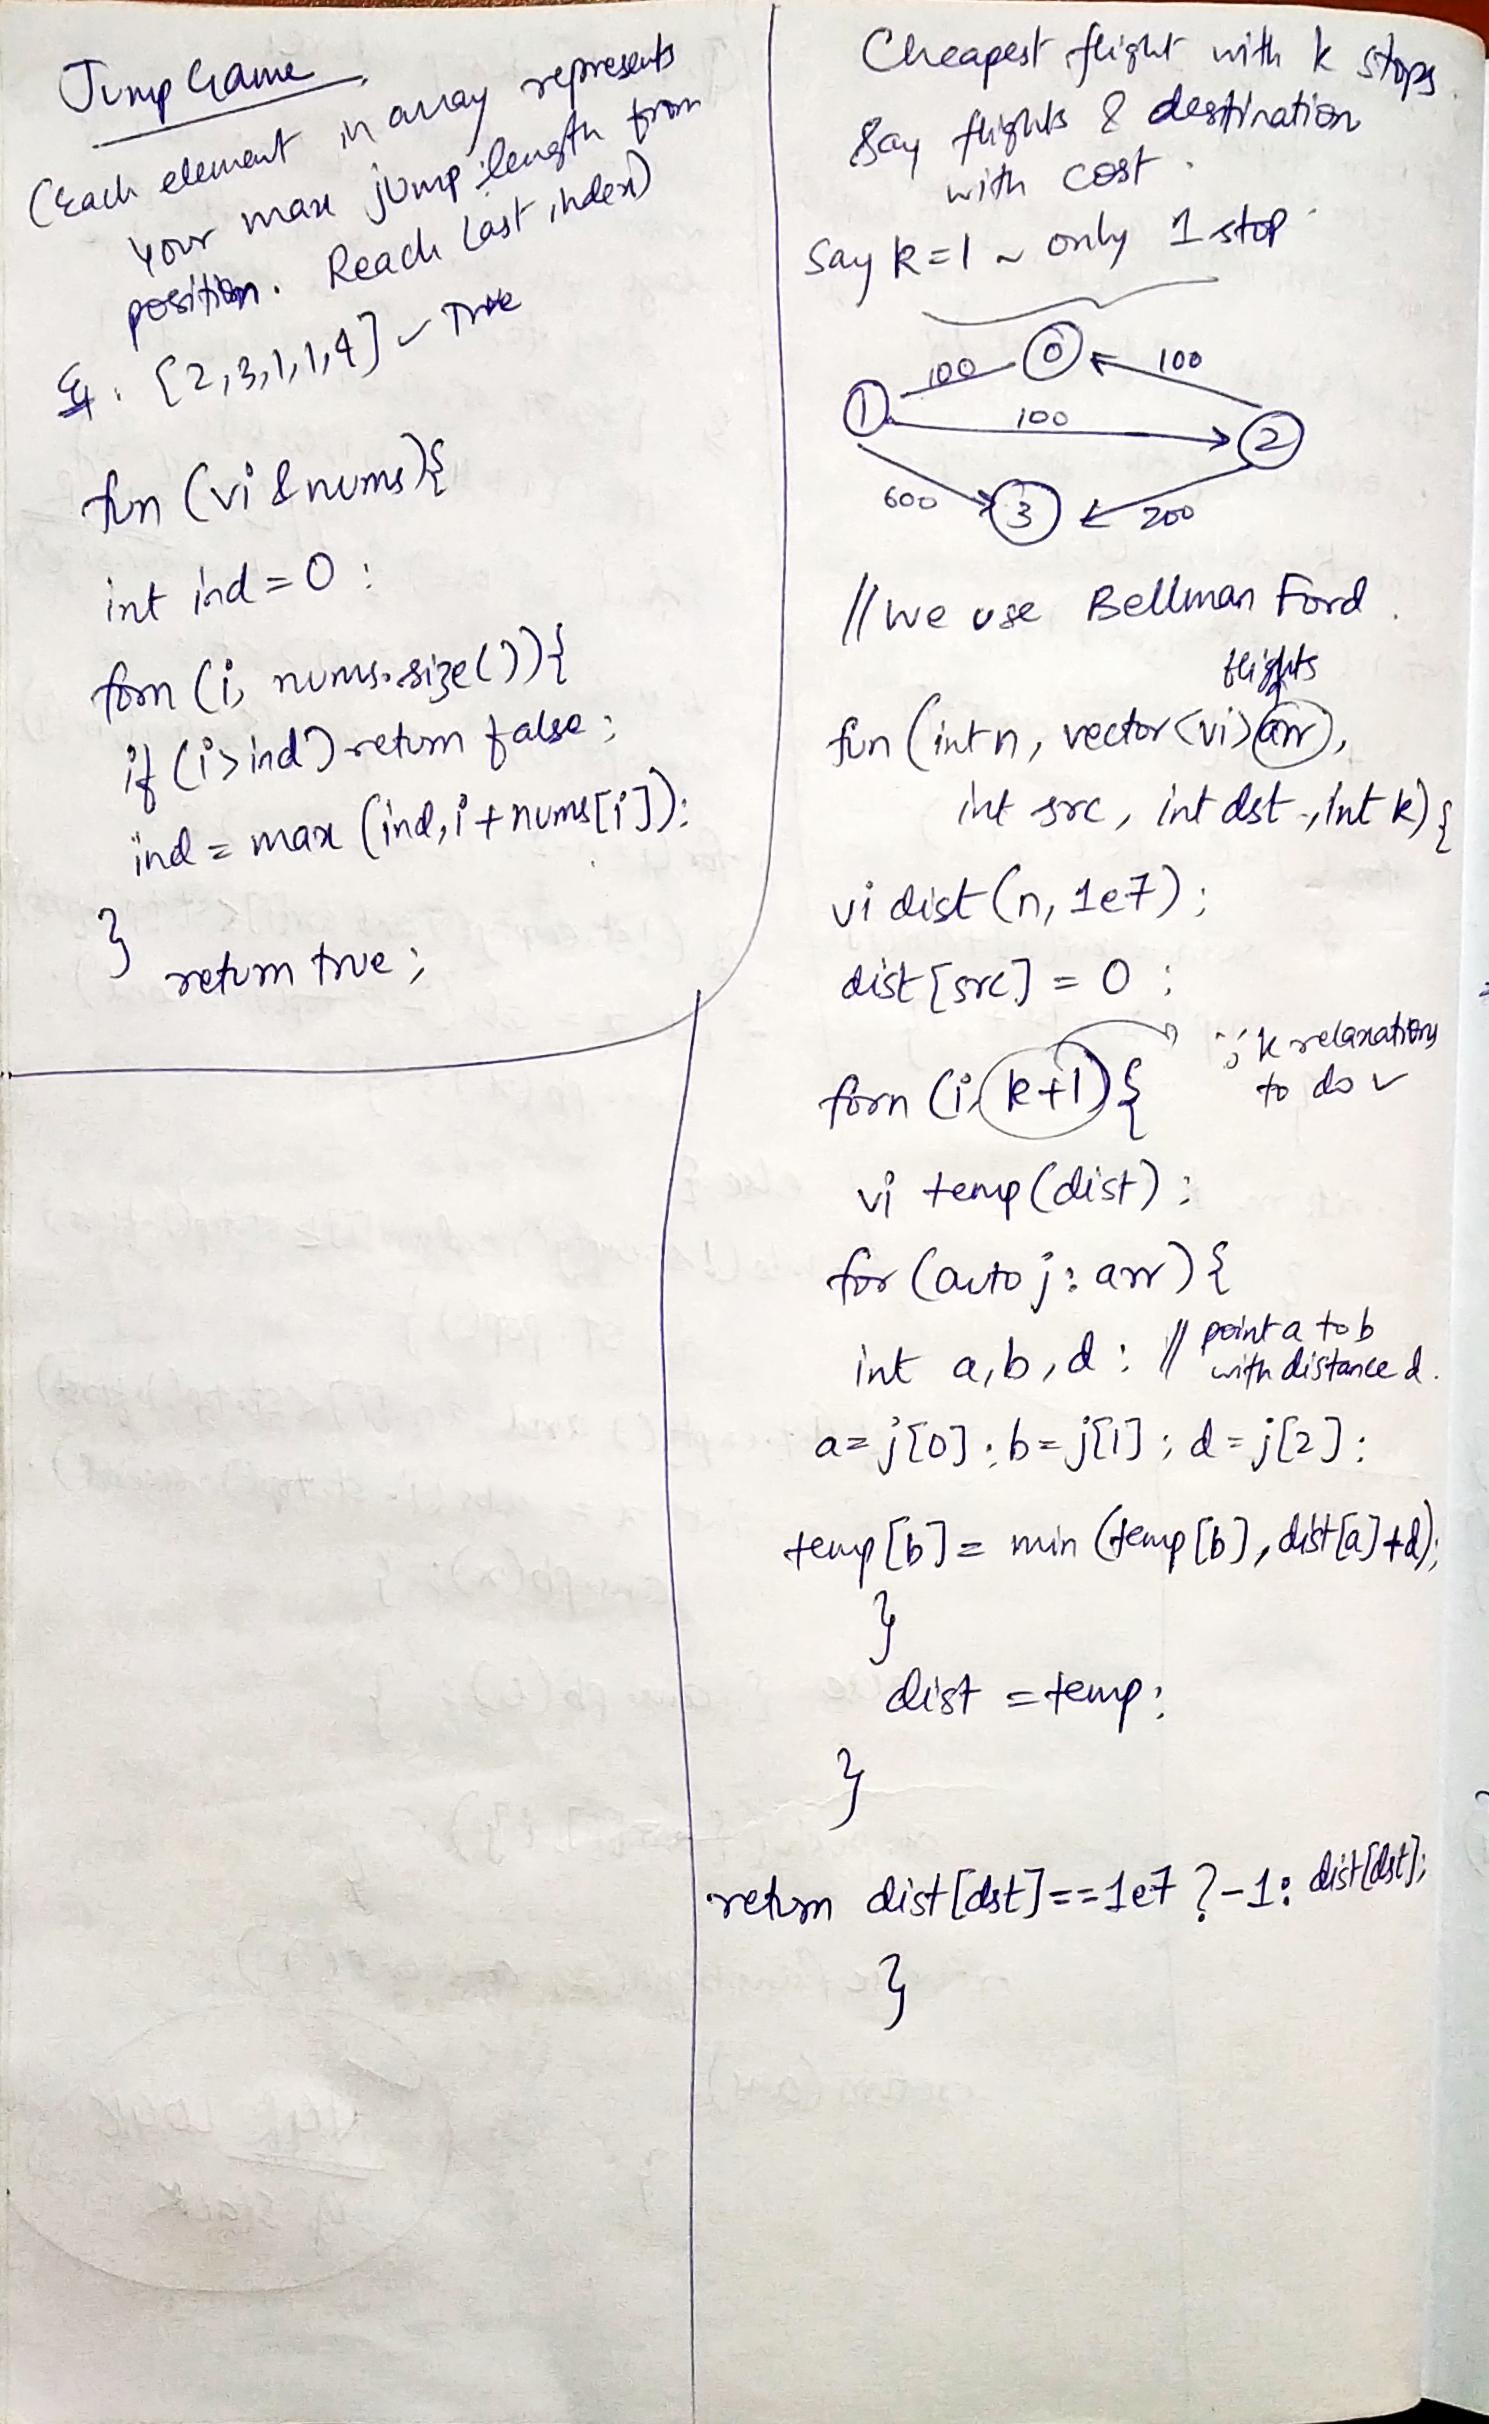 Jump Game
(Each element in array represents
your max jump length from
position. Reach last index)
Eg. [2,3,1,1,4] ~ True
fun (vi &nums){
int ind=0;
forn (i, nums.size()){
if (i>ind) return false;
ind = max (ind, i+nums[i]);
}
return true;
Cheapest flight with k stops.
Say flights & destination
with cost.
Say k=1 ~ only 1 stop.
0
100
100
1
100
2
600
3
200
// We use Bellman Ford.
flights
fun (int n, vector<vi> arr,
int src, int dst, int k){
vi dist (n, 1e7);
dist[src] = 0;
forn (i, k+1){
∵ k relaxations
to do ✓
vi temp(dist);
for (auto j: arr) {
int a,b,d; // point a to b
with distance d.
a=j[0]; b=j[1]; d=j[2];
temp[b]= min (temp[b], dist[a]+d);
}
dist = temp;
}
return dist[dst]==1e7 ?-1: dist[dst];
}